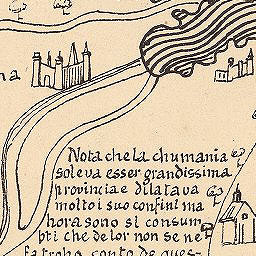 na
Nota che la chumania
soleva esser grandissima
provincia e dilatava
molto i suo confini ma
hora sono si consum
pti che de lor non se ne
fa troho conto de ques-